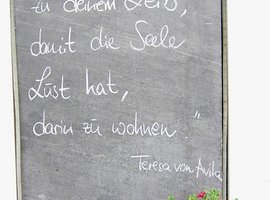 zu deinem Leib,
damit die Seele
Lust hat,
darin zu wohnen."
Teresa von Avila